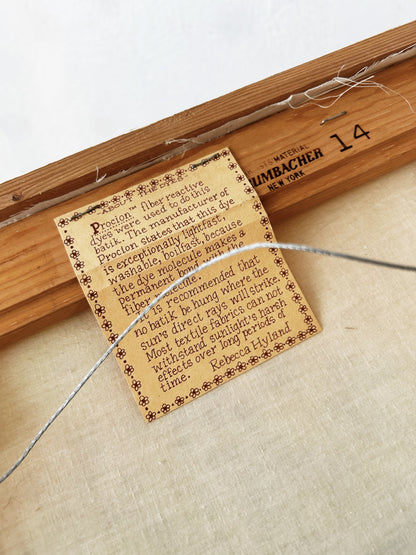 ABOUT THE DYES
Procion ™ fiber reactive
dyes were used to do this
batik. The manufacturer of
Procion states that this dye
is exceptionally lightfast,
washable, boilfast, because
the dye molecule makes a
Permanent bond with the
fiber molecule.
It is recommended that
no batik be hung where the
sun's direct rays will strike.
Most textile fabrics can not
withstand sunlight's harsh
effects over long periods of
time. Rebecca Hyland
MATERIAL
UMBACHER
NEW YORK
14